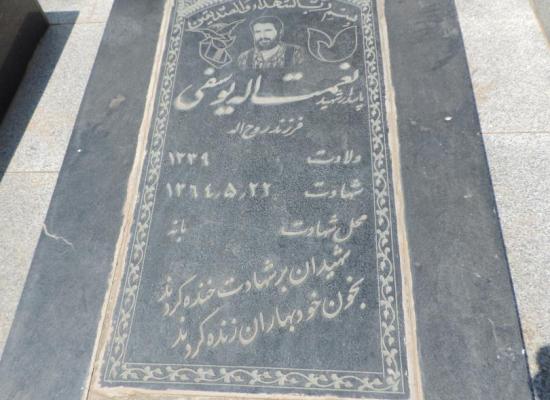 بسم رب الشهداء والصدیقین
پاسدار شهید نعمت اله یوسفی
فرزند روح اله
ولادت ۱۳۳۹
شهادت ۱۳۶۴٫۵٫۲۲
محل شهادت بانه
شهیدان بر شهادت خنده کردند
بخون خود بهاران زنده کردند